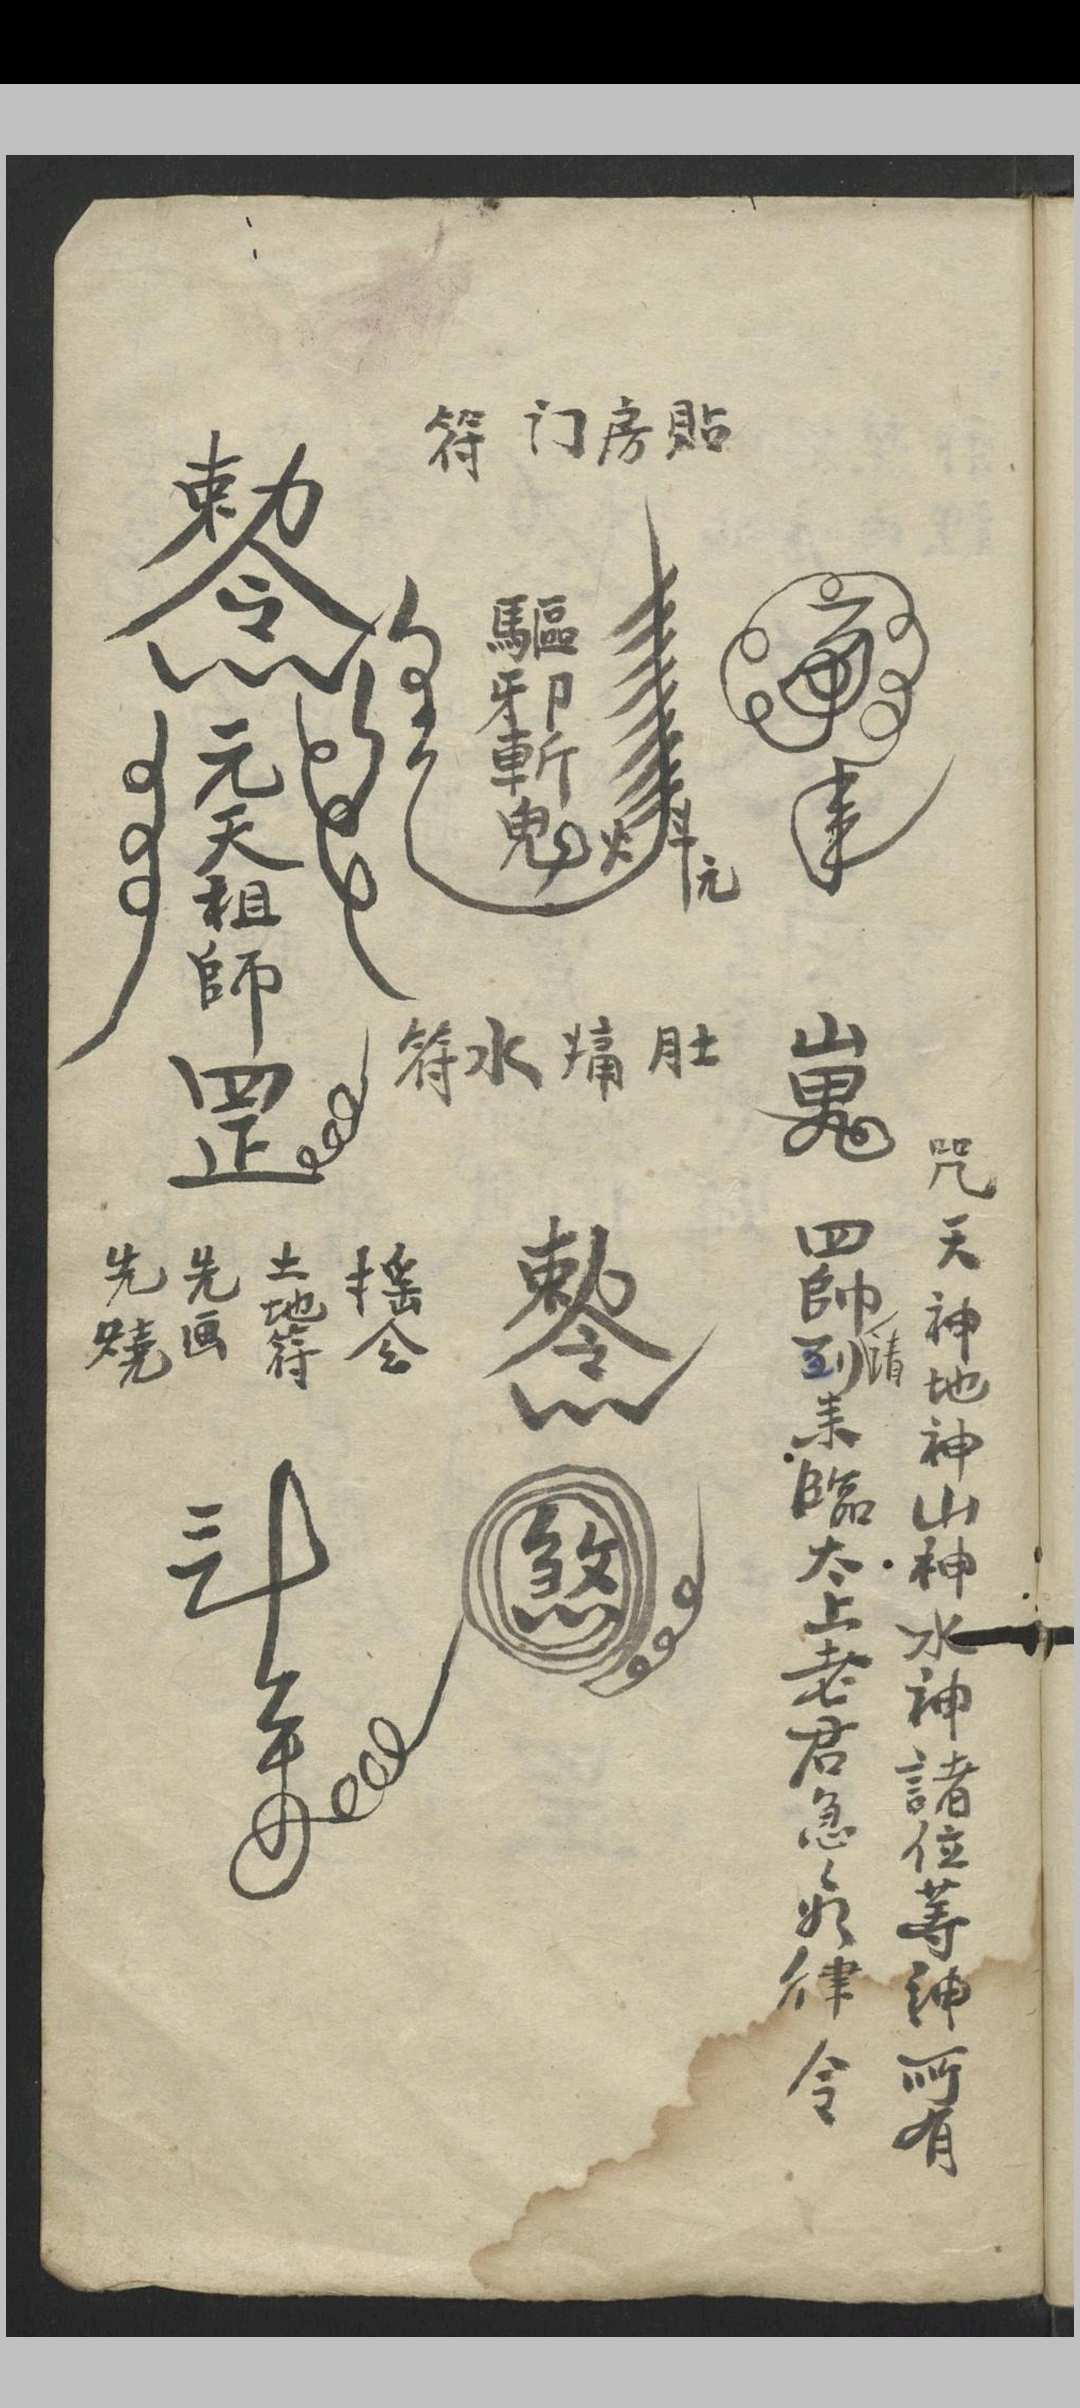 咒天神地神山神水神諸位等神所有
四帥到請来臨太上老君急急如律令
貼房门符
驅邪斬鬼
火
斗
元
肚痛水符
勅令
煞
勅令
元天祖師
罡
搖会
土地符
先画
先燒